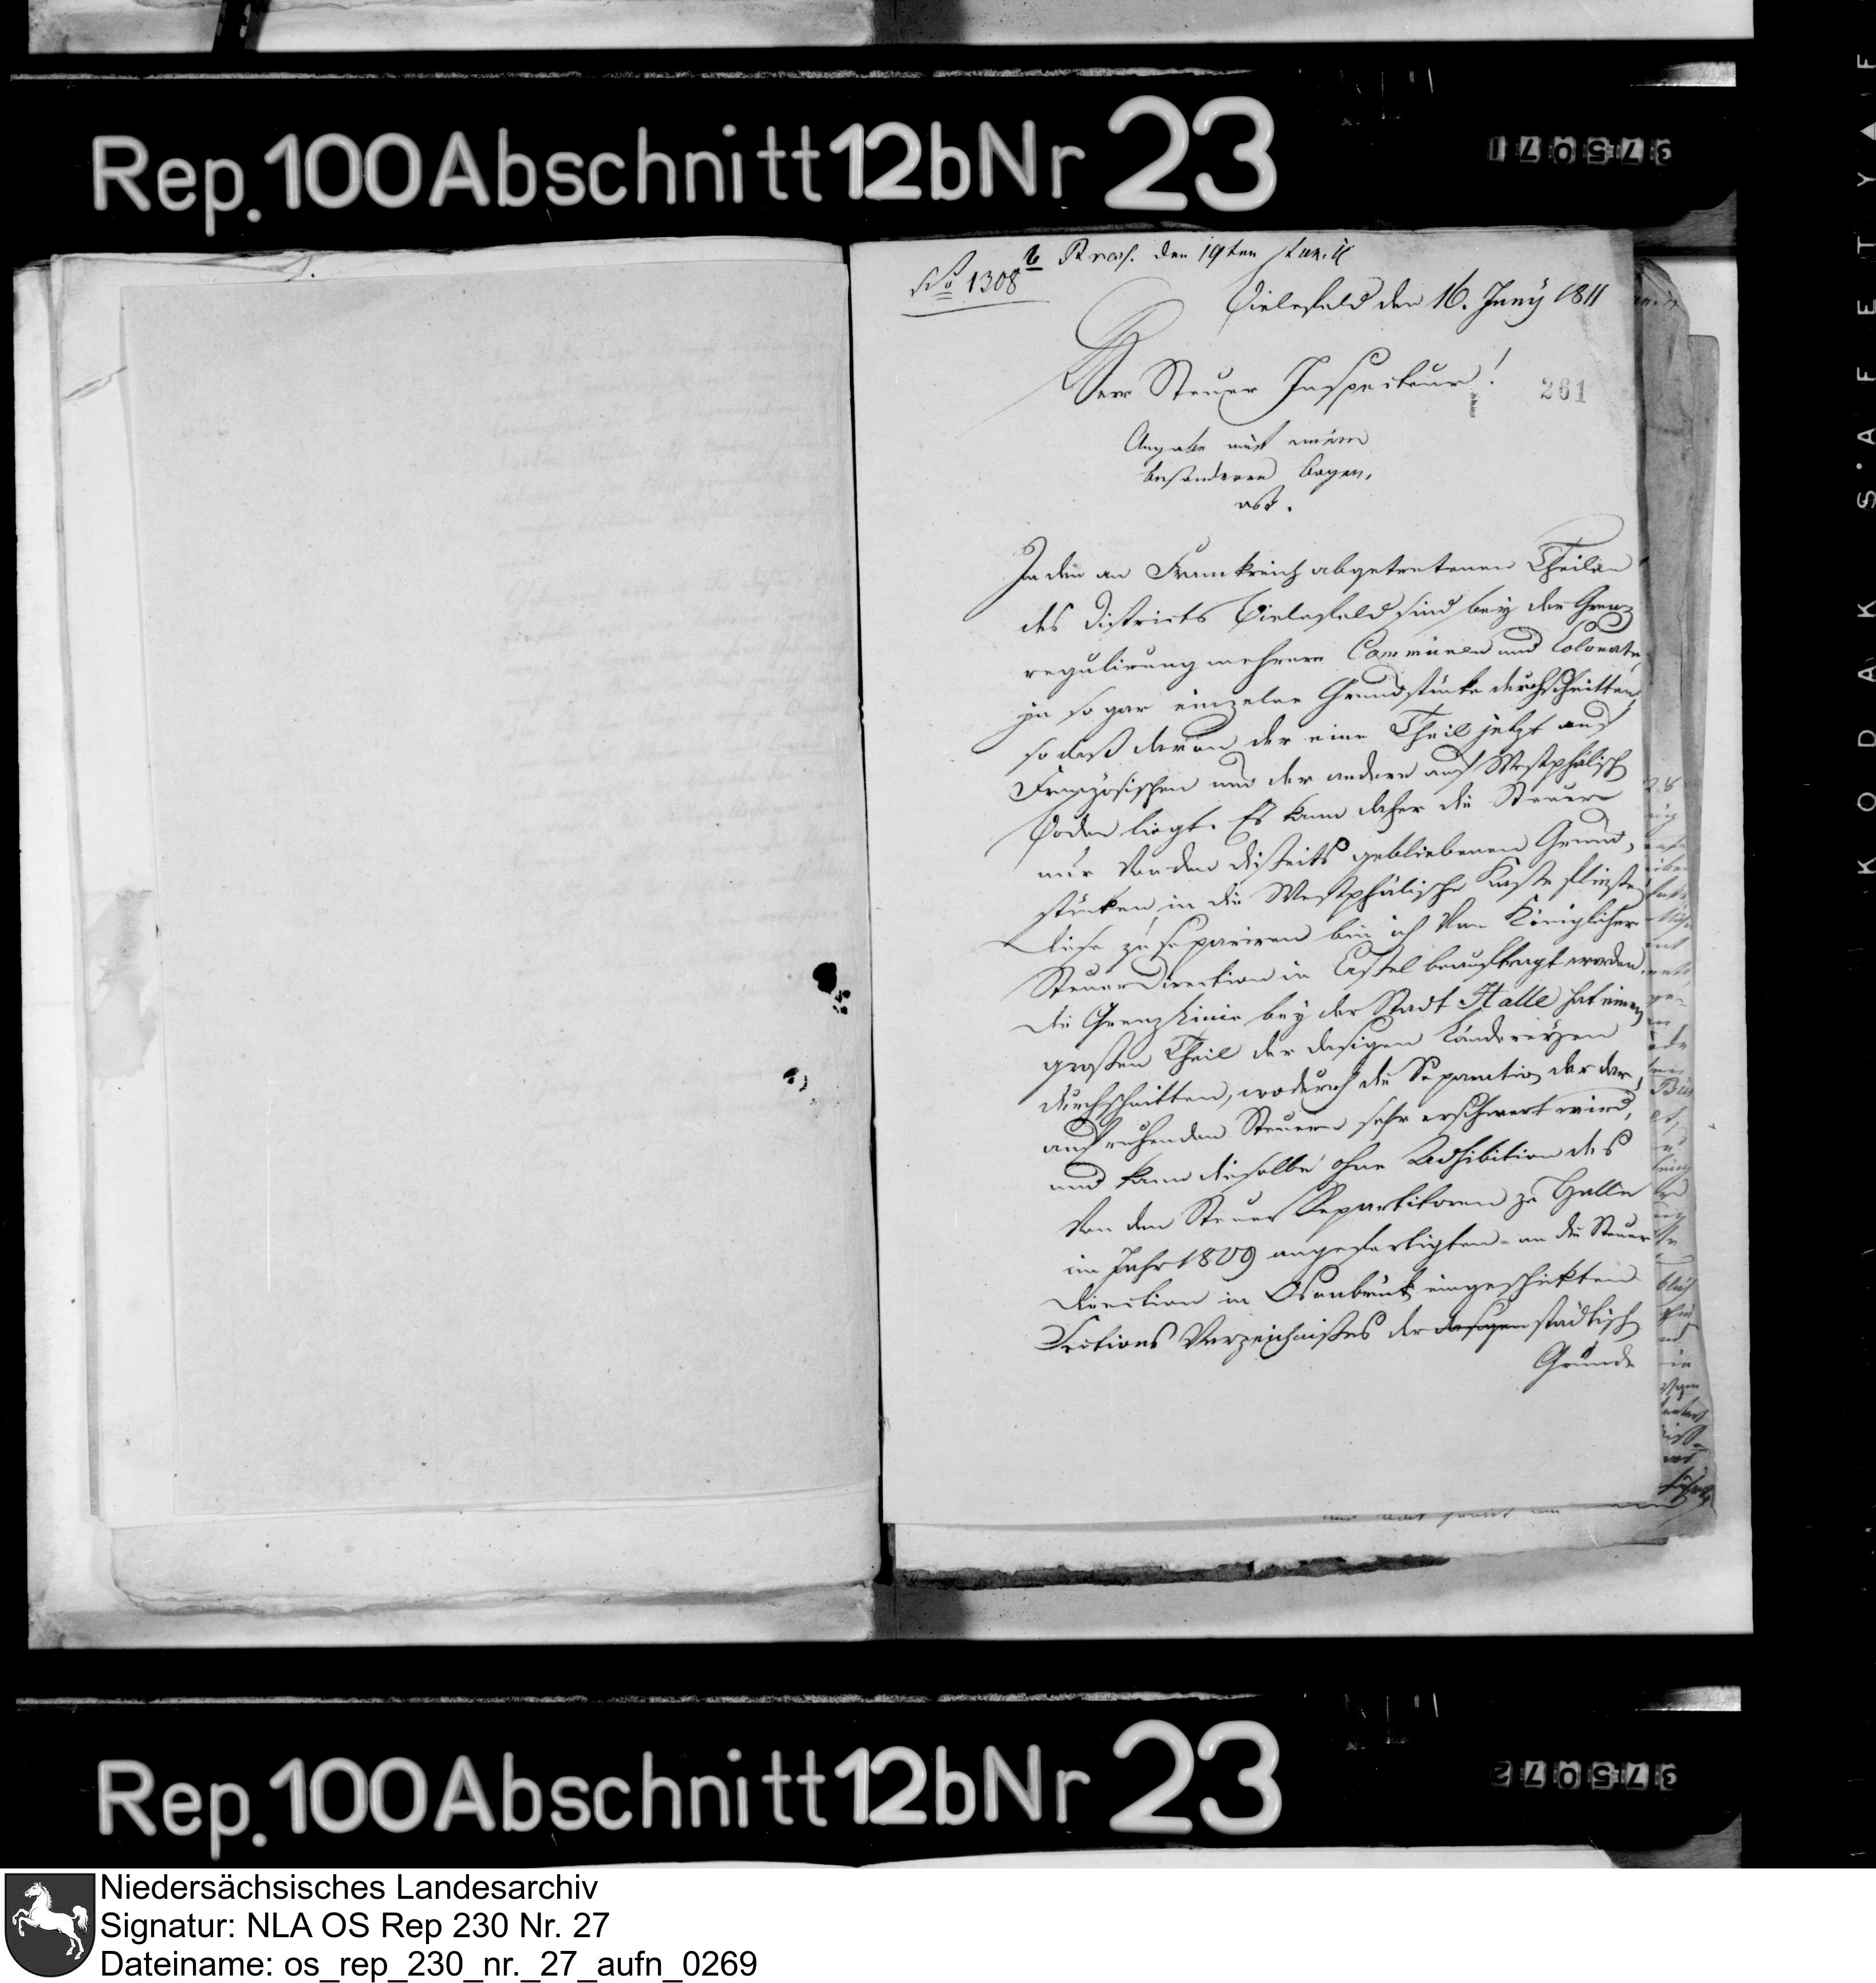 Rep. 100 Abschnitt 12b Nr 23
375071
No 1308 b Praes. den 19ten Jun. 11
Bielefeld den 16. Juny 1811
Herr Steuer Inspecteur!
261
Angabe mit einem
besonderen Bogen,
In den an Frankreich abgetretenen Theilen
des Districts Bielefeld sind bey der Grenz
regulirung mehrere Communen und Colonate,
ja sogar einzelne Grundstücke durchschnitten,
so daß davon der eine Theil jetzt auf
Französischen und der andere auf Westphälisch
Boden liegt. Es kann daher die Steuer
nur von den disseits gebliebenen Grund-
stücken in die Westphälische Kasse fließen,
diese zu separiren bin ich von Königlicher
Steuer Direction in Cassel beauftragt worden.
Die Grenz Linie bey der Stadt Halle hat einen
großen Theil der dasigen Ländereyen
durchschnitten, wodurch die Separation der dar-
auf ruhenden Steuern sehr erschwert wird,
und kann dieselbe ohne Adhibition des
von den Steuer Repartitoren zu Halle
im Jahr 1809 angefertigten - an die Steuer
Direction in Osnabrück eingeschickten
Sections Verzeichnißes der dasigen städtisch
Grunde
Rep. 100 Abschnitt 12b Nr 23
375072
KODAK S'AFETY
Niedersächsisches Landesarchiv
Signatur: NLA OS Rep 230 Nr. 27
Dateiname: os_rep_230_nr._27_aufn_0269